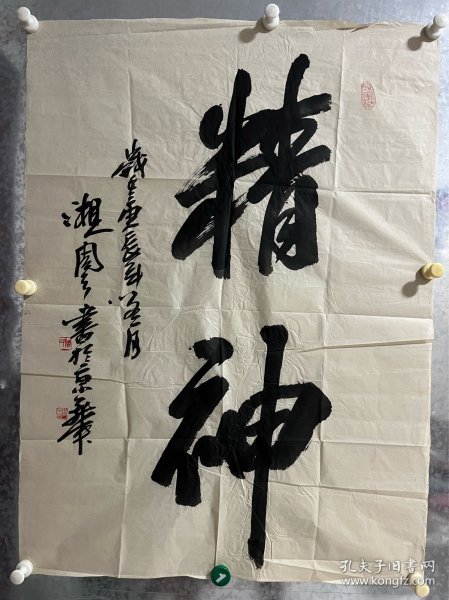 精神
歲在庚辰年
書於京華
1
孔夫子旧书网
www.kongfz.com